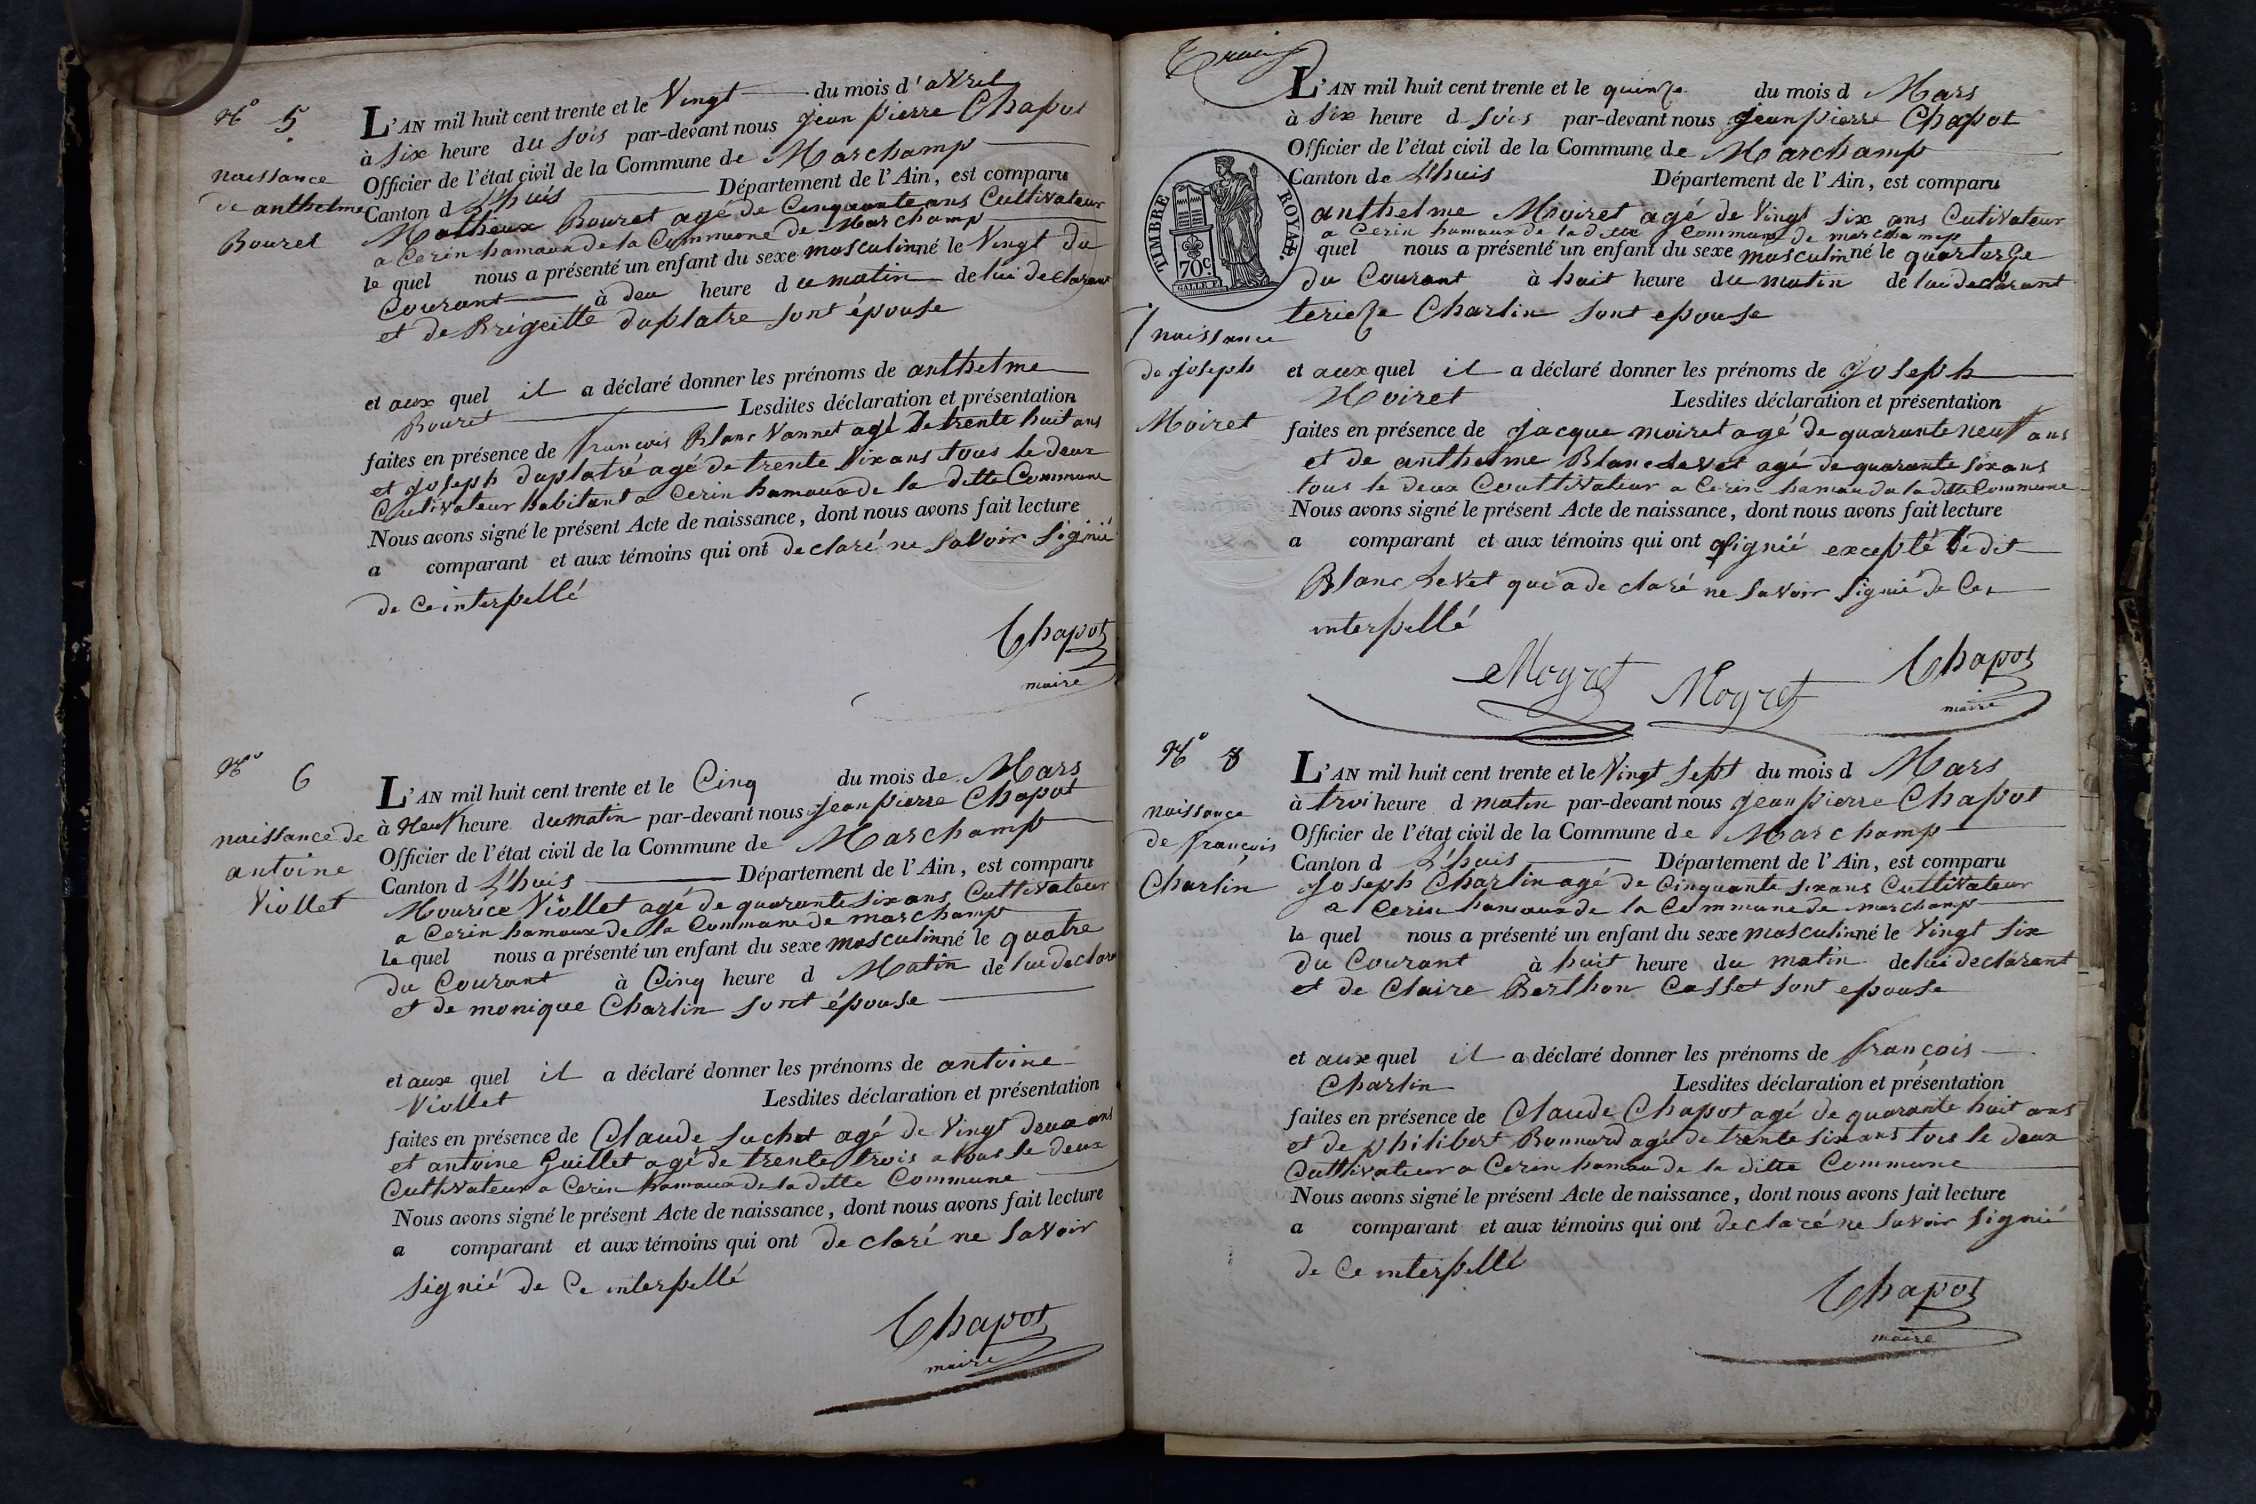 N° 5
naissance
de anthelme
Bouret
L'AN mil huit cent trente et le Vingt du mois d'avril
à Six heure du Sois par-devant nous jean pierre Chapot
Officier de l'état civil de la Commune de Marchamp
Canton d L'huis Département de l'Ain, est comparu
Matheux Bouret agé de Cinquante ans Cultivateur
a Cerin hamaux de la Commune de Marchamp
le quel nous a présenté un enfant du sexe masculin né le Vingt du
Courant à deu heure du matin de lui declarant
et de Brigeitte duplatre sont épouse
et aux quel il a déclaré donner les prénoms de anthelme
Bouret Lesdites déclaration et présentation
faites en présence de francois Blanc Vannet agé De trente huit ans
et joseph duplatré agé de trente Six ans tous le deux
Cultivateur habitant a Cerin hamaux de la ditte Commune
Nous avons signé le présent Acte de naissance, dont nous avons fait lecture
a comparant et aux témoins qui ont declaré ne Savoir Signié
de Ce interpellé
Chapot
maire
N° 6
naissance de
antoine
Viollet
L'AN mil huit cent trente et le Cinq du mois de Mars
à Neuf heure du matin par-devant nous jean pierre Chapot
Officier de l'état civil de la Commune de Marchamp
Canton d L'huis Département de l'Ain, est comparu
Mourice Viollet agé de quarante Six ans Cultivateur
a Cerin hamaux de la Commune de marchamp
le quel nous a présenté un enfant du sexe masculin né le quatre
du Courant à Cinq heure d Matin de lui declara
et de monique Charlin sont épouse
et aux quel il a déclaré donner les prénoms de antoine
Viollet Lesdites déclaration et présentation
faites en présence de Claude Suchet agé de Vingt deux ans
et antoine Guillet agé de trente trois a tous le deux
Cultivateur a Cerin hamaux de la ditte Commune
Nous avons signé le présent Acte de naissance, dont nous avons fait lecture
a comparant et aux témoins qui ont declaré ne Savoir
Signié de Ce interpellé
Chapot
maire
TIMBRE ROYAL.
70c.
7 naissance
de joseph
Moiret
L'AN mil huit cent trente et le quinze du mois d Mars
à Six heure d Sois par-devant nous jean pierre Chapot
Officier de l'état civil de la Commune de Marchamp
Canton de L'huis Département de l'Ain, est comparu
anthelme Moiret agé de Vingt Six ans Cutivateur
a Cerin hamaux de la ditte Commune de marchamp
quel nous a présenté un enfant du sexe masculin né le quartorze
du Courant à huit heure du matin de lui declarant
terieze Charlin sont epouse
et aux quel il a déclaré donner les prénoms de joseph
Moiret Lesdites déclaration et présentation
faites en présence de jacque moiret agé de quarante neuf ans
et de anthelme Blanc Levet agé de quarante Six ans
tous le deux Coultivateur a Cerin hamau de la ditte Commune
Nous avons signé le présent Acte de naissance, dont nous avons fait lecture
a comparant et aux témoins qui ont Signié excepté Le dit
Blanc Levet qui a declaré ne Savoir Signié de Ce
interpellé
Moyret Moyret Chapot
maire
N° 8
naissance
de francois
Charlin
L'AN mil huit cent trente et le Vingt Sept du mois d Mars
à troi heure d matin par-devant nous jean pierre Chapot
Officier de l'état civil de la Commune de Marchamp
Canton d L'huis Département de l'Ain, est comparu
joseph Charlin agé de Cinquante Six ans Cultivateur
a Cerin hamaux de la Commune de marchamp
le quel nous a présenté un enfant du sexe masculin né le Vingt Six
du Courant à huit heure du matin de lui declarant
et de Claire Berthon Casset sont epouse
et aux quel il a déclaré donner les prénoms de françois
Charlin Lesdites déclaration et présentation
faites en présence de Claude Chapot agé de quarante huit ans
et de philibert Bonnard agé de trente Six ans tous le deux
Cultivateur a Cerin hamau de la ditte Commune
Nous avons signé le présent Acte de naissance, dont nous avons fait lecture
a comparant et aux témoins qui ont declaré ne Savoir Signié
de Ce interpellé
Chapot
maire